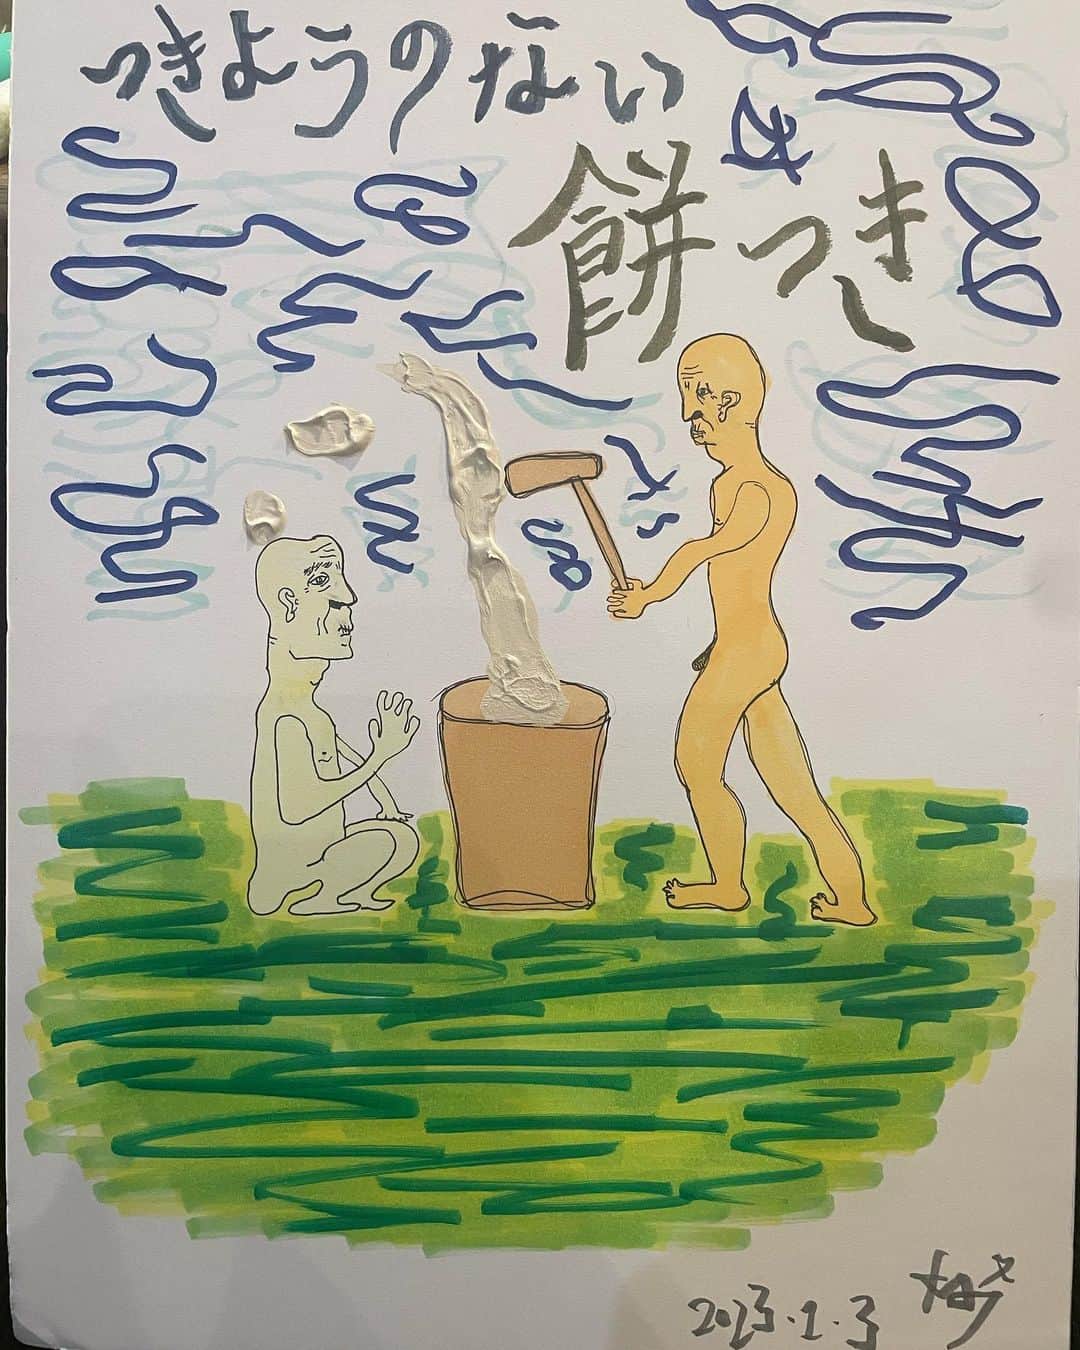 つきようのない
餅つき
2023.1.3